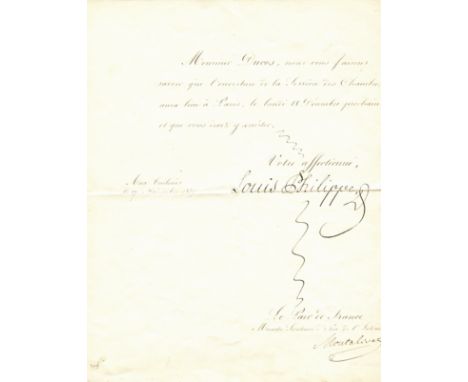 Monsieur Ducos, nous vous faisons
savoir que l'ouverture de la Session des Chambres
aura lieu à Paris, le lundi 18 Décembre prochain
et que vous irez y assister.
Votre affectionné,
Aux Tuileries
Louis Philippe
Le Pair de France
Ministre Secrétaire d'État de l'Intérieur
Montalivet